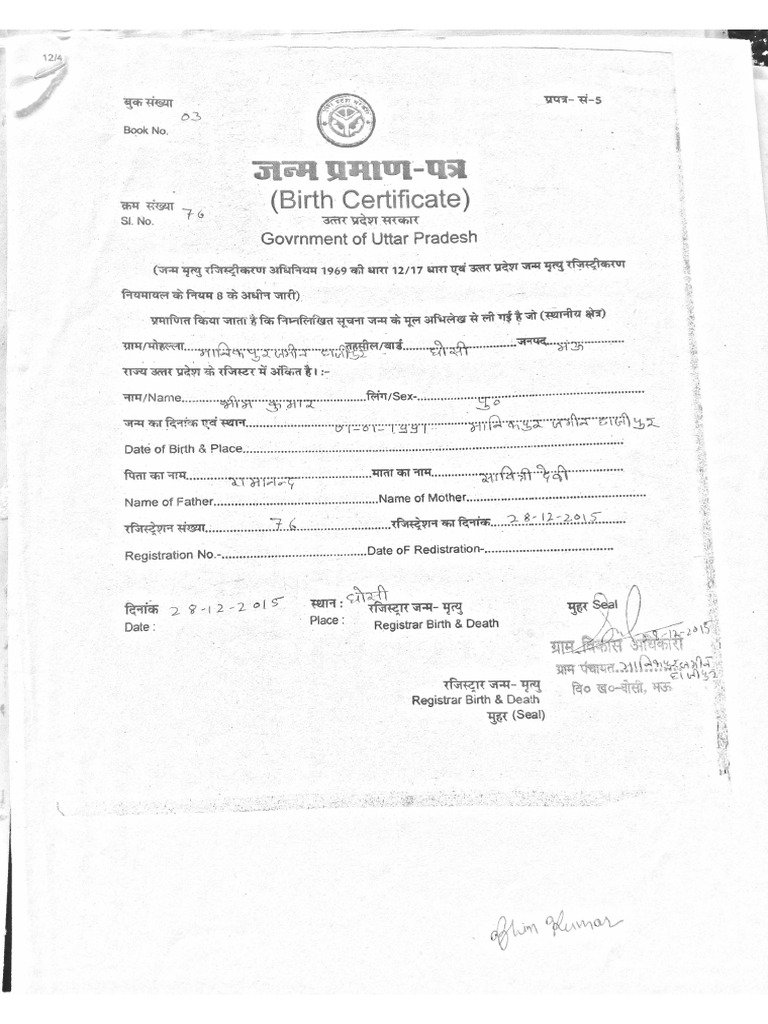 12/4
बुक संख्या 03 प्रपत्र- सं-5
Book No.
जन्म प्रमाण-पत्र
(Birth Certificate)
क्रम संख्या 76
Sl. No.
उत्तर प्रदेश सरकार
Govrnment of Uttar Pradesh
(जन्म मृत्यु रजिस्ट्रीकरण अधिनियम 1969 की धारा 12/17 धारा एवं उत्तर प्रदेश जन्म मृत्यु रजिस्ट्रीकरण
नियमावल के नियम 8 के अधीन जारी)
प्रमाणित किया जाता है कि निम्नलिखित सूचना जन्म के मूल अभिलेख से ली गई है जो (स्थानीय क्षेत्र)
ग्राम/मोहल्ला मानिकपुर जमीन हाजीपुर तहसील/वार्ड घोसी जनपद मऊ
राज्य उत्तर प्रदेश के रजिस्टर में अंकित है। :-
नाम/Name भीम कुमार लिंग/Sex- पु०
जन्म का दिनांक एवं स्थान मानिकपुर जमीन हाजीपुर
Date of Birth & Place
पिता का नाम रामानन्द माता का नाम सावित्री देवी
Name of Father Name of Mother
रजिस्ट्रेशन संख्या 76 रजिस्ट्रेशन का दिनांक 28-12-2015
Registration No.- Date oF Redistration-
दिनांक 28-12-2015 स्थान : घोसी रजिस्ट्रार जन्म- मृत्यु मुहर Seal
Date : Place : Registrar Birth & Death
28-12-2015
ग्राम विकास अधिकारी
ग्राम पंचायत मानिकपुर जमीन
हाजीपुर
वि० ख०-घोसी, मऊ
रजिस्ट्रार जन्म- मृत्यु
Registrar Birth & Death
मुहर (Seal)
Bhim Kumar